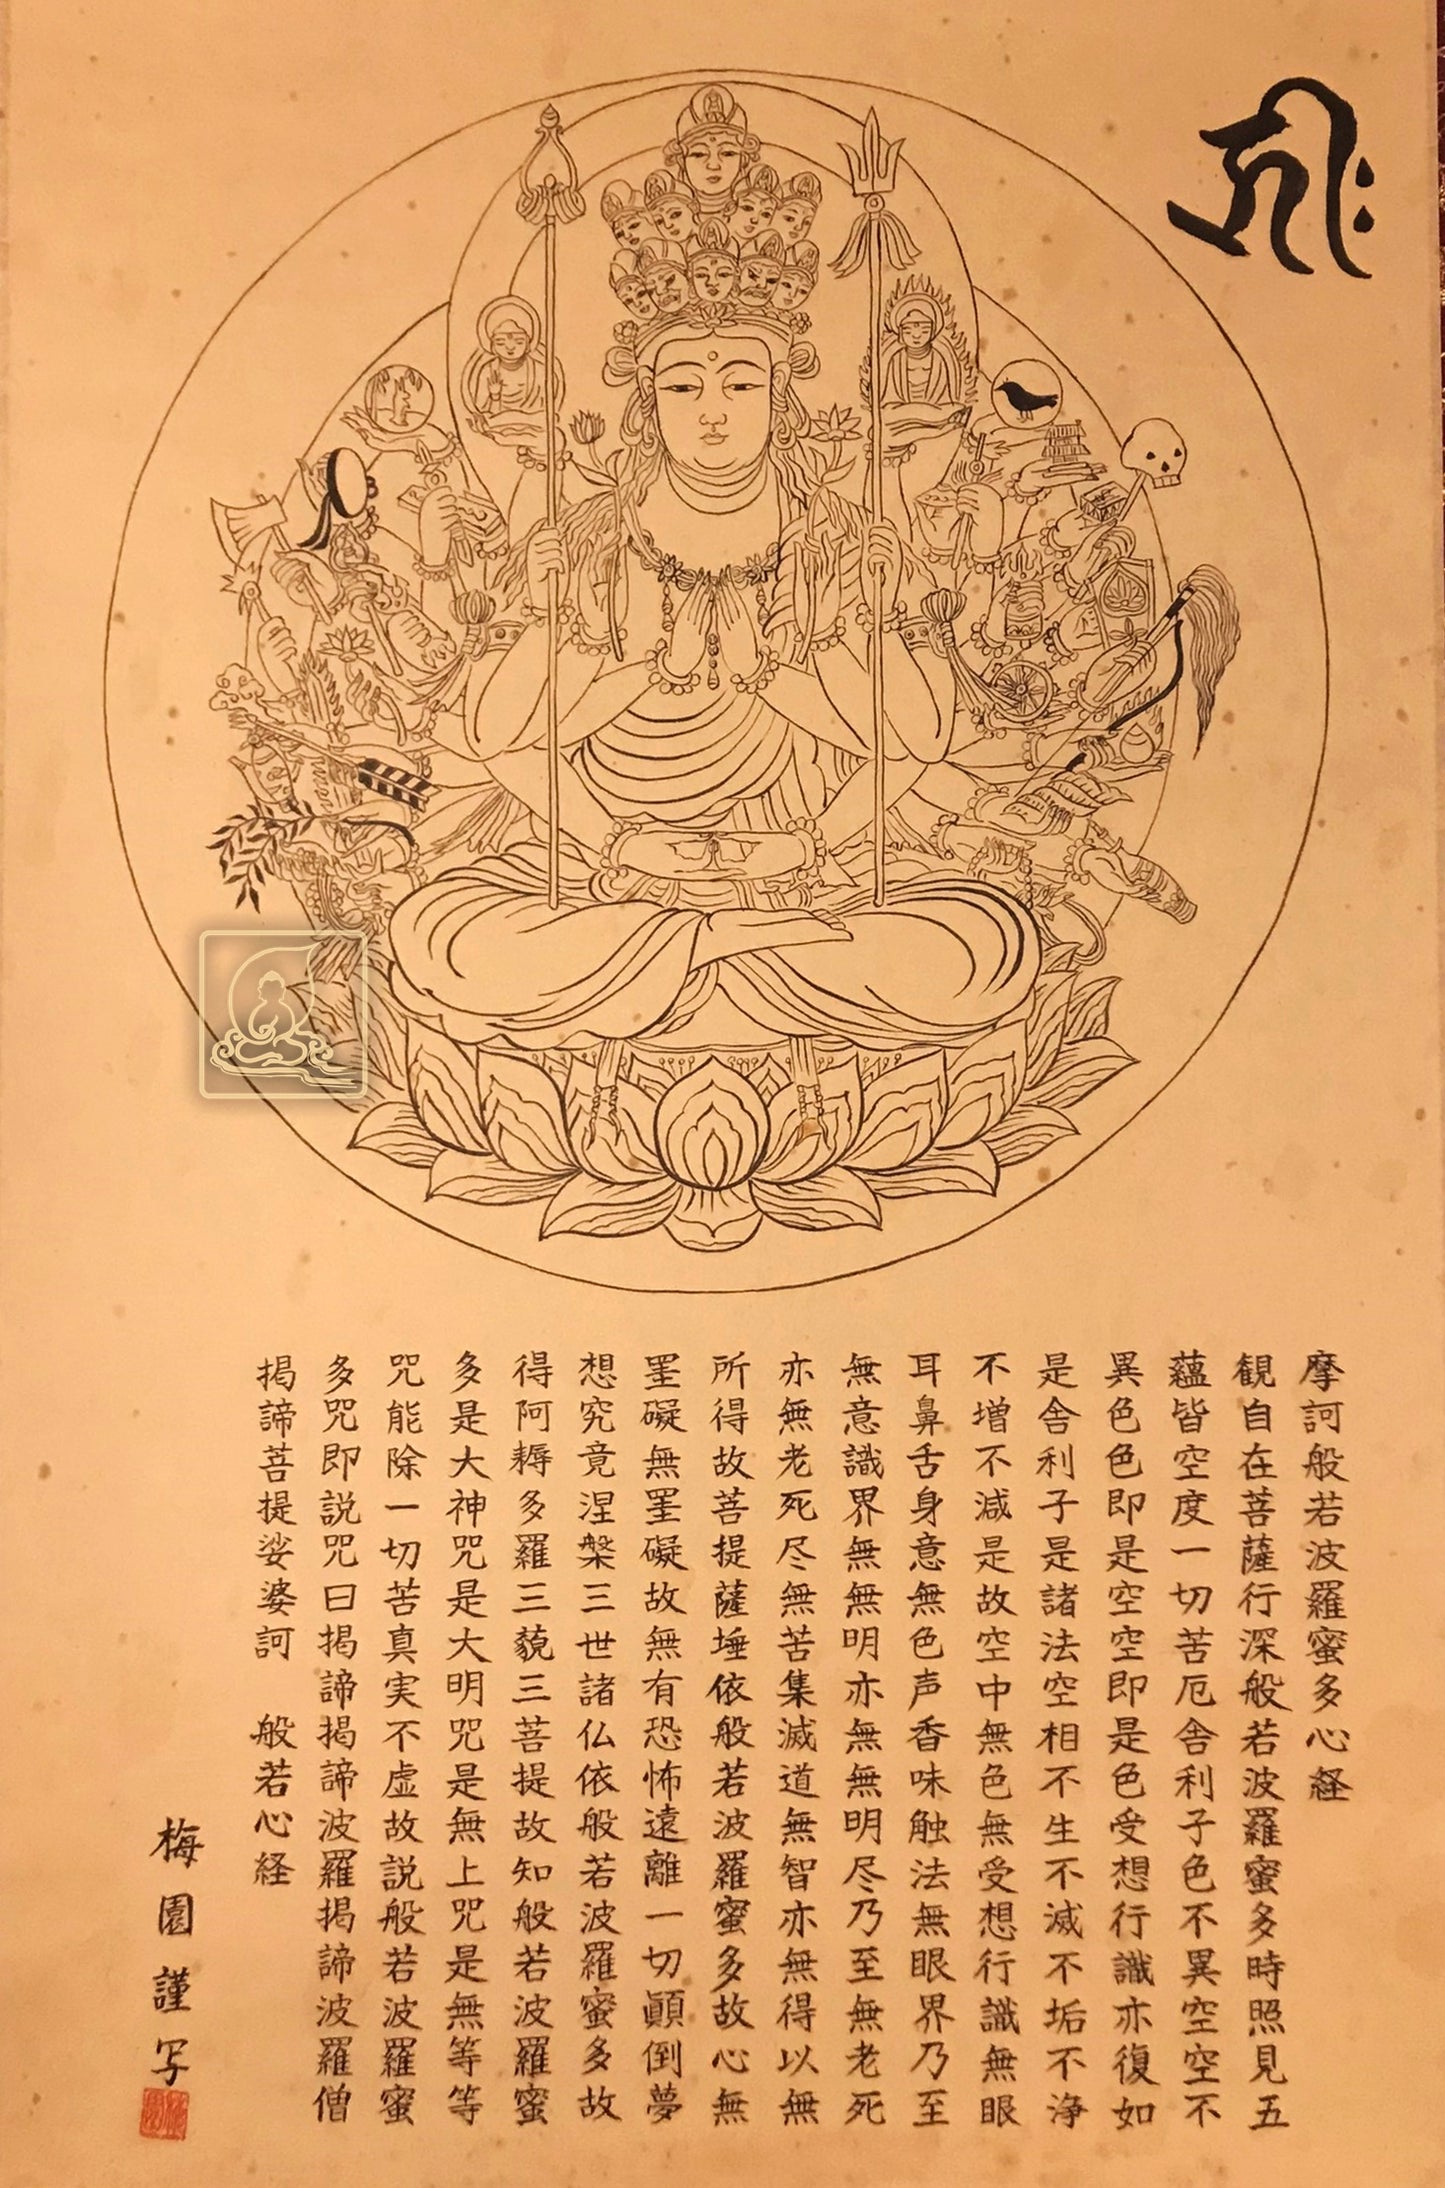 𑖮𑖿𑖨𑖱𑖾
摩訶般若波羅蜜多心経
観自在菩薩行深般若波羅蜜多時照見五
蘊皆空度一切苦厄舎利子色不異空空不
異色色即是空空即是色受想行識亦復如
是舎利子是諸法空相不生不滅不垢不浄
不増不減是故空中無色無受想行識無眼
耳鼻舌身意無色声香味触法無眼界乃至
無意識界無無明亦無無明尽乃至無老死
亦無老死尽無苦集滅道無智亦無得以無
所得故菩提薩埵依般若波羅蜜多故心無
罣礙無罣礙故無有恐怖遠離一切顛倒夢
想究竟涅槃三世諸仏依般若波羅蜜多故
得阿耨多羅三藐三菩提故知般若波羅蜜
多是大神咒是大明咒是無上咒是無等等
咒能除一切苦真実不虚故説般若波羅蜜
多咒即説咒曰掲諦掲諦波羅掲諦波羅僧
掲諦菩提娑婆訶　般若心経
梅園謹写